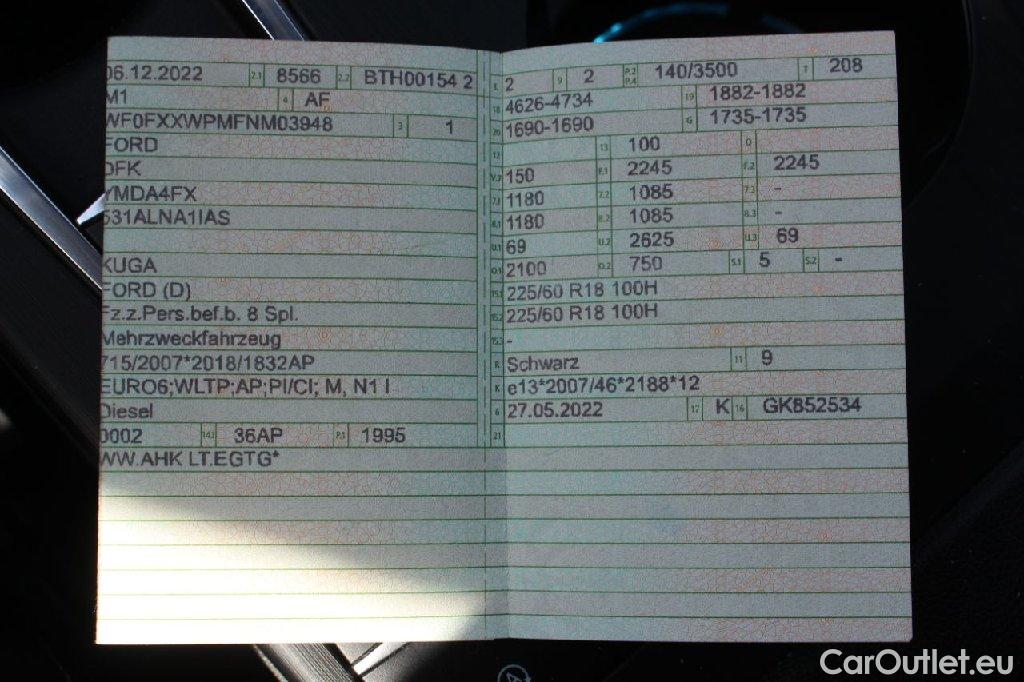 06.12.2022 2.1 8566 2.2 BTH00154 2
M1 4 AF
WF0FXXWPMFNM03948 3 1
FORD
DFK
YMDA4FX
531ALNA1IAS
KUGA
FORD (D)
Fz.z.Pers.bef.b. 8 Spl.
Mehrzweckfahrzeug
715/2007*2018/1832AP
EURO6;WLTP;AP;PI/CI; M, N1 I
Diesel
0002 14.1 36AP P.1 1995
WW.AHK LT.EGTG*
L 2 9 2 P.2 P.4 140/3500 T 208
18 4626-4734 19 1882-1882
20 1690-1690 G 1735-1735
12 13 100 Q
V.7 150 F.1 2245 F.2 2245
7.1 1180 7.2 1085 7.3 -
8.1 1180 8.2 1085 8.3 -
U.1 69 U.2 2625 U.3 69
O.1 2100 O.2 750 S.1 5 S.2 -
15.1 225/60 R18 100H
15.2 225/60 R18 100H
15.3 -
R Schwarz 11 9
K e13*2007/46*2188*12
6 27.05.2022 17 K 16 GK852534
21
CarOutlet.eu